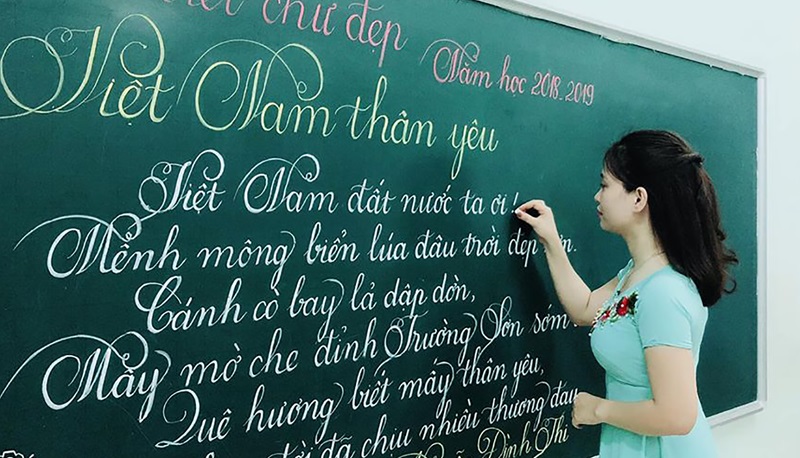 chữ đẹp
Năm học 2018-2019
Việt Nam thân yêu
Việt Nam đất nước ta ơi!
Mênh mông biển lúa đâu trời đẹp
Cánh cò bay lả dập dờn,
Mây mờ che đỉnh Trường Sơn sớm
Quê hương biết mấy thân yêu,
đời đã chịu nhiều thương đau
Đình Thi